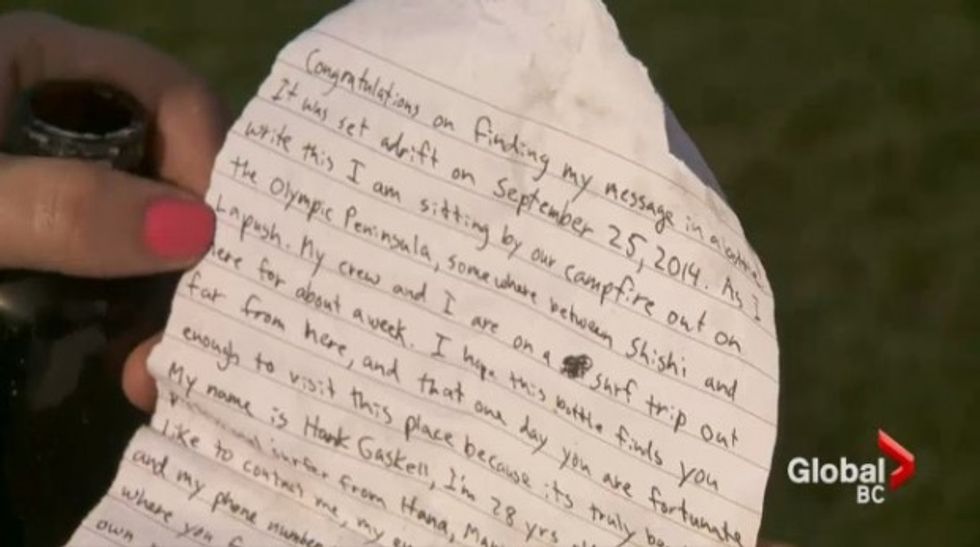 Congratulations on finding my message in a bottle!
It was set adrift on September 25, 2014. As I
write this I am sitting by our campfire out on
the Olympic Peninsula, somewhere between Shishi and
Lapush. My crew and I are on a surf trip out
here for about a week. I hope this bottle finds you
far from here, and that one day you are fortunate
enough to visit this place because its truly
My name is Hank Gaskell, I'm 28 yrs
surfer from Hana,
like to contact me, my
and my phone number
where you
own
Global
BC